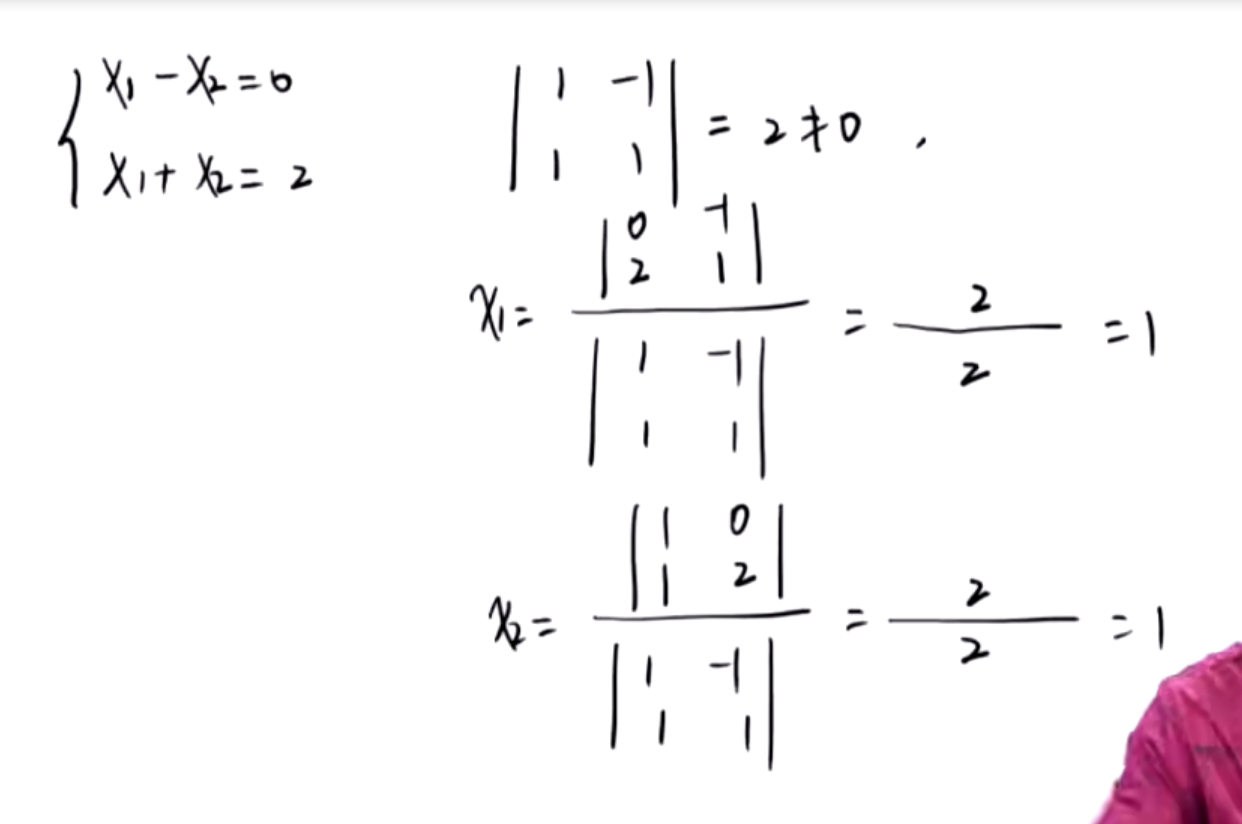 x₁ - x₂ = 0
x₁ + x₂ = 2
| 1 -1 |
| 1 1 | = 2 ≠ 0 ,
x₁ = | 0 -1 |
| 2 1 |
/
| 1 -1 |
| 1 1 | = 2 / 2 = 1
x₂ = | 1 0 |
| 1 2 |
/
| 1 -1 |
| 1 1 | = 2 / 2 = 1